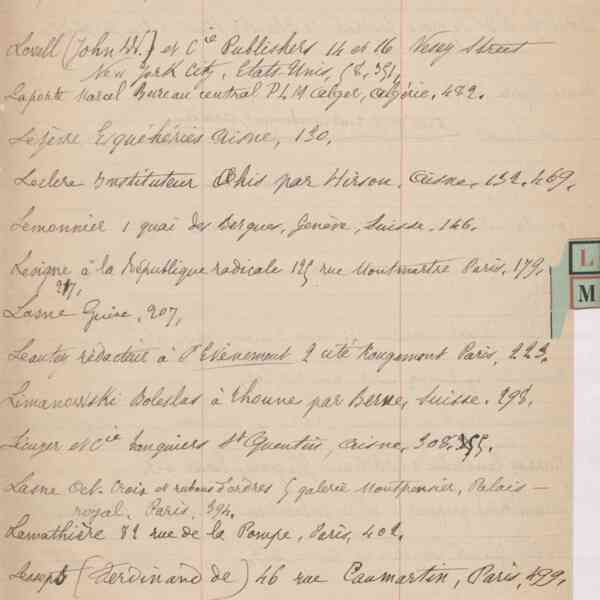 Lovell (John W.) et Cie Publishers 14 et 16 Vesey Street
New York City, Etats-Unis, 58, 351,
Laporte Marcel Bureau central PLM Alger, Algérie. 482.
Lefèvre Esquéhéries Aisne, 130,
Leclerc Instituteur Ohis par Hirson, Aisne, 132. 469,
Lemonnier 1 quai des Bergues, Genève, Suisse. 146.
Lavigne à la République radicale 125 rue Montmartre Paris. 179,
217,
Lasne Guise, 207,
Leautey rédacteur à l'Evènement 2 cité Rougemont Paris, 223.
Limanowski Boleslas à Thoune par Berne, Suisse. 298.
et Cie banquiers St Quentin, Aisne, 308.
Lasne Oct. Croix et rubans d'ordres 5 galerie Montpensier, Palais-
royal. Paris, 394.
Lamathière 82 rue de la Pompe, Paris, 402.
Lesseps (Ferdinand de) 46 rue Caumartin, Paris, 499.
L
M